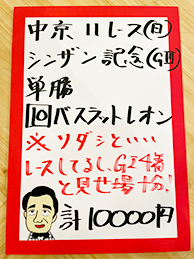 中京11レース(日)
シンザン記念(GⅢ)
単勝
10バスラットレオン
※ソダシといい
レースしてるし、GⅠ4着
と見せ場十分!
計10000円